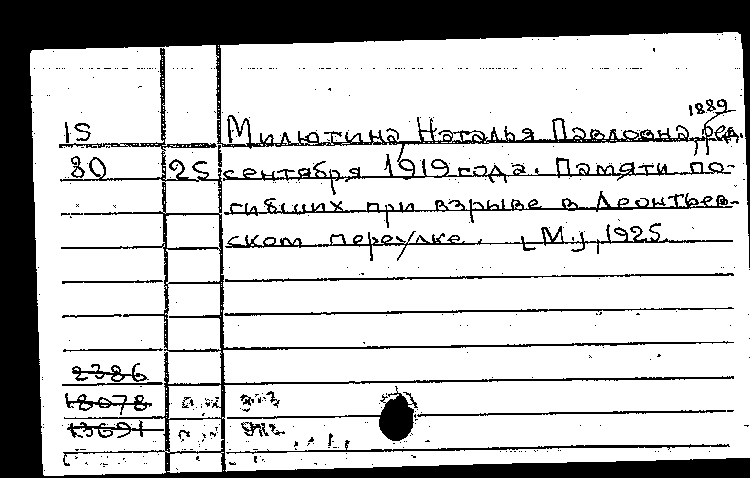 1889
IS Милютина, Наталья Павловна, ред.
80 25 сентября 1919 года. Памяти по-
гибших при взрыве в Леонтьев-
ском переулке. [М.], 1925.
2386
18078
13691